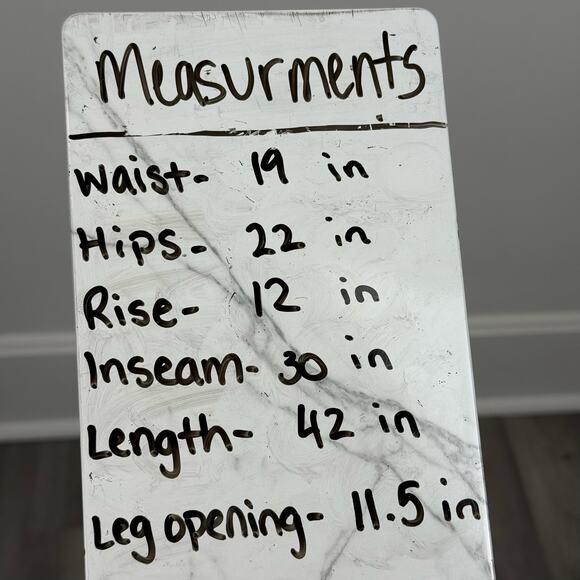 Measurments
Waist- 19 in
Hips- 22 in
Rise- 12 in
Inseam- 30 in
Length- 42 in
Leg opening- 11.5 in